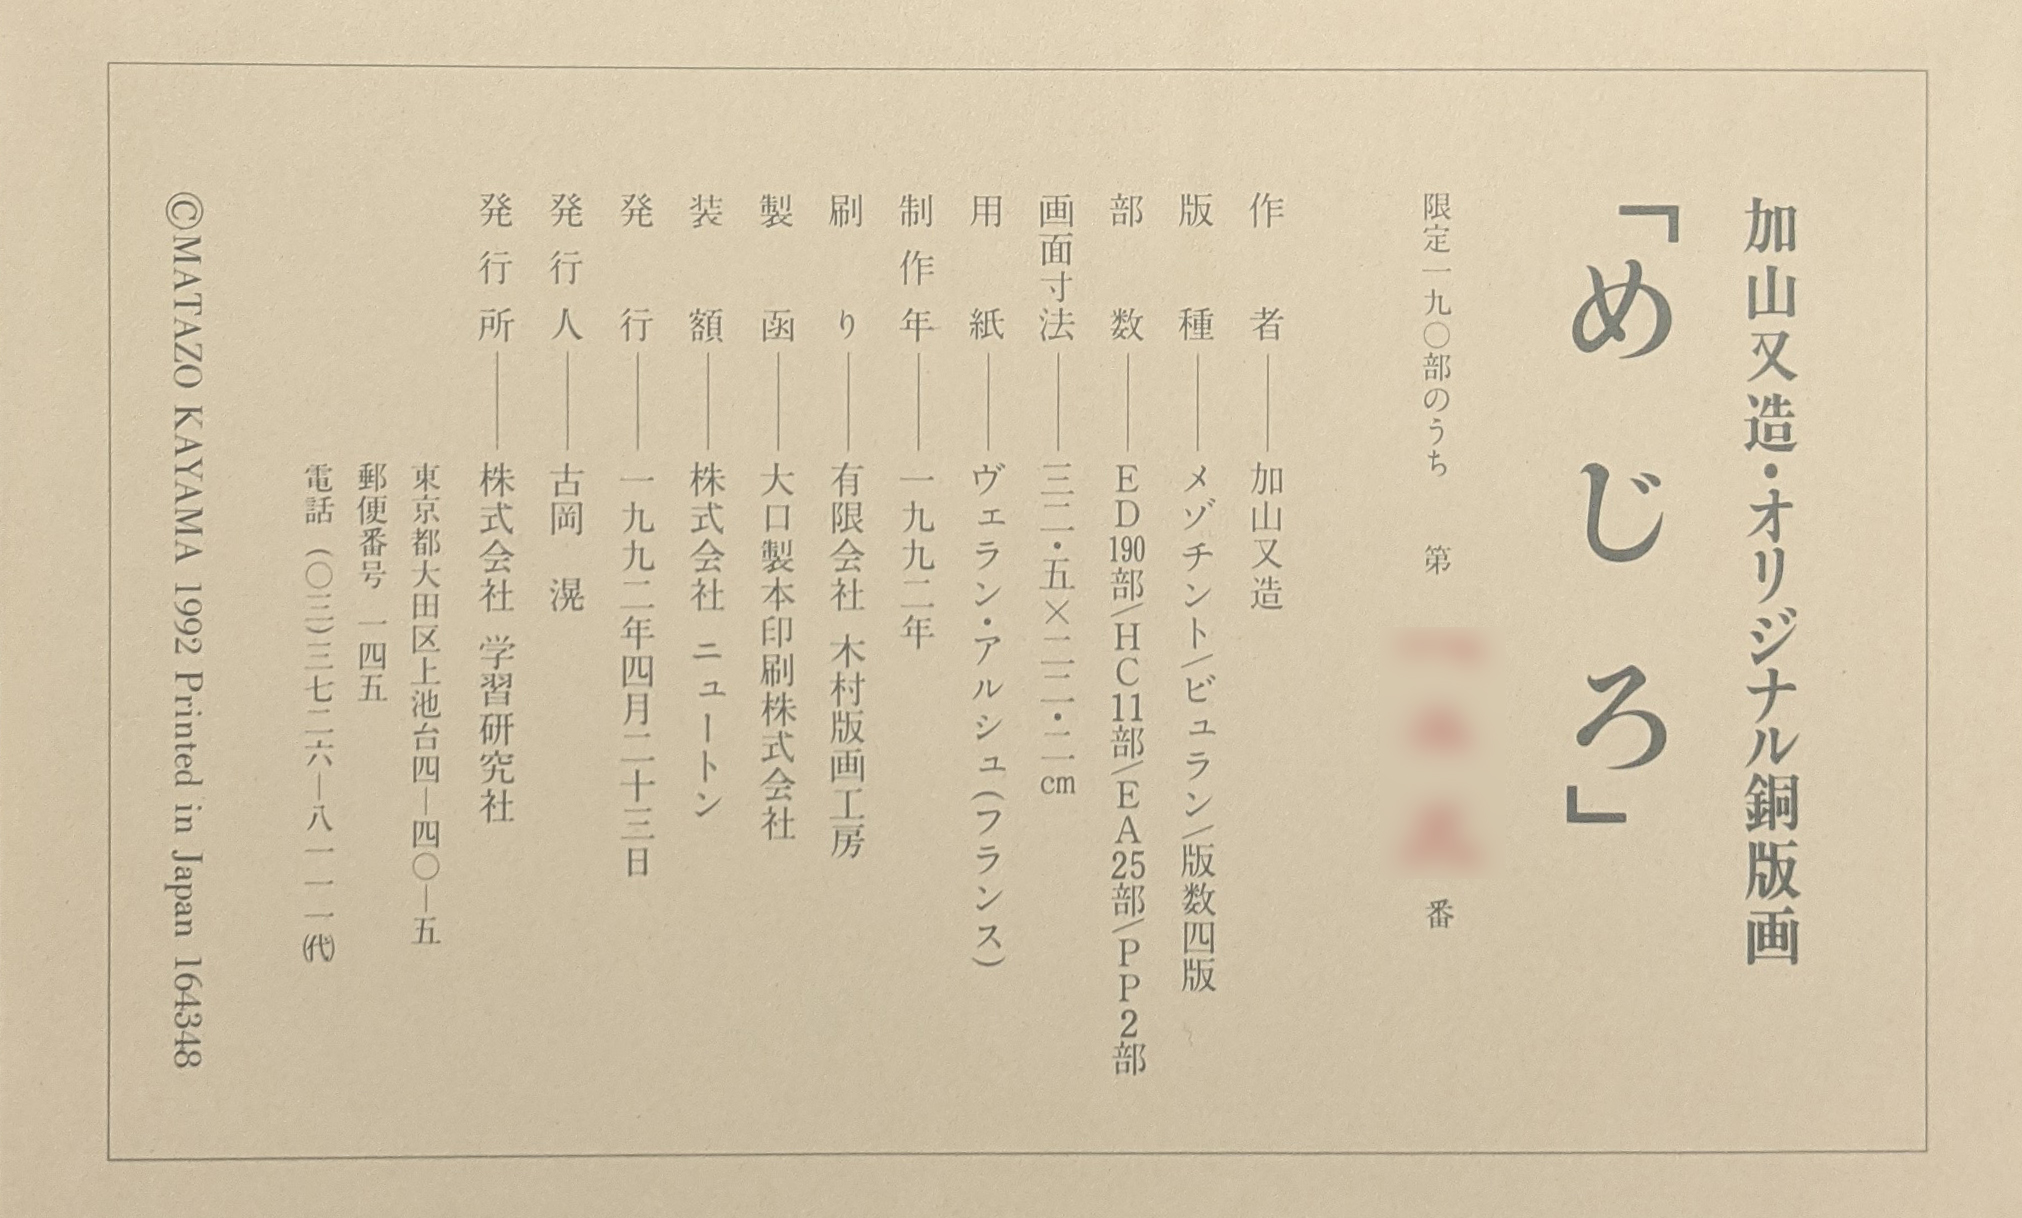 加山又造・オリジナル銅版画
「めじろ」
限定一九〇部のうち 第 番
作者――加山又造
版種――メゾチント/ビュラン/版数四版
部数――ED190部/HC11部/EA25部/PP2部
画面寸法――三二・五×二二・二cm
用紙――ヴェラン・アルシュ(フランス)
制作年――一九九二年
刷り――有限会社 木村版画工房
製函――大口製本印刷株式会社
装額――株式会社 ニュートン
発行――一九九二年四月二十三日
発行人――古岡 滉
発行所――株式会社 学習研究社
東京都大田区上池台四―四〇―五
郵便番号 一四五
電話 (〇三)三七二六―八一一一(代)
©MATAZO KAYAMA 1992 Printed in Japan 164348